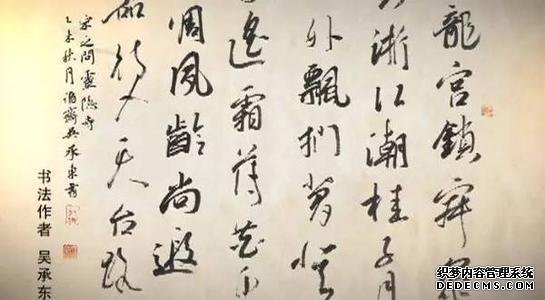 龍宮鎖寂寥
對浙江潮桂子月
外飄捫蘿登
遙霜薄花更
凋夙齡尚遐
待入天台路
宋之問靈隱寺
乙未秋月 吳承東書
书法作者 吴承东
织梦内容管理系统
DEDECMS.COM